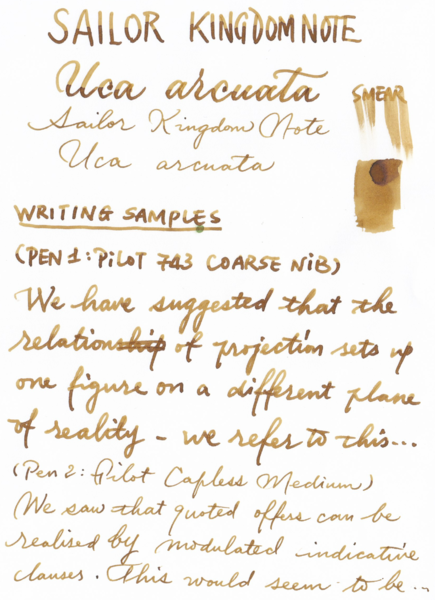 SAILOR KINGDOM NOTE
Uca arcuata
SMEAR
Sailor Kingdom Note
Uca arcuata
WRITING SAMPLES
(PEN 1: PiLOT 743 COARSE NiB)
We have suggested that the
relationship of projection sets up
one figure on a different plane
of reality - we refer to this...
(Pen 2: Pilot Capless Medium)
We saw that quoted offers can be
realised by modulated indicative
clauses. This would seem to be...